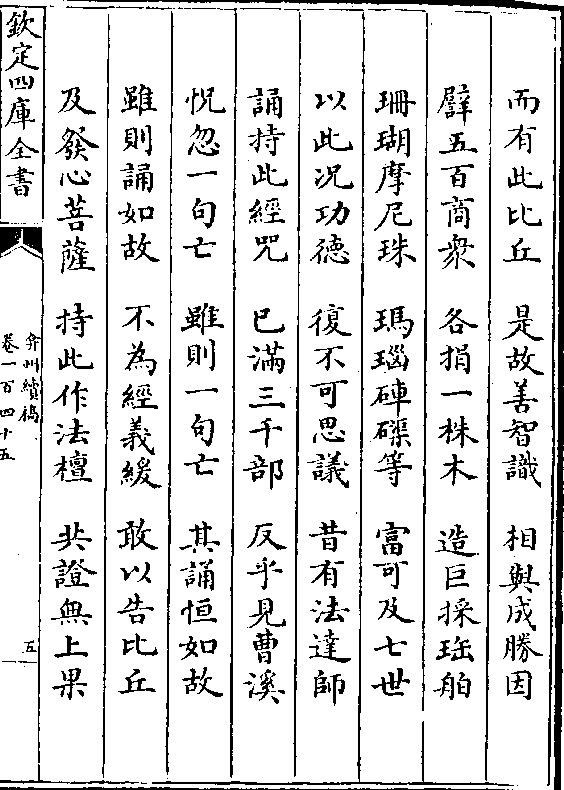 而有此比丘　是故善智識　相與成勝因
譬五百商衆　各捐一株木　造巨採珤舶
珊瑚摩尼珠　瑪瑙硨磲等　富可及七世
以此況功德　復不可思議　昔有法達師
誦持此經咒　已滿三千部　反乎見曹溪
怳忽一句亡　雖則一句亡　其誦恒如故
雖則誦如故　不為經義緩　敢以告比丘
及發心菩薩　持此作法檀　共證無上果
欽定四庫全書
弇州續稿
卷一百四十五
五